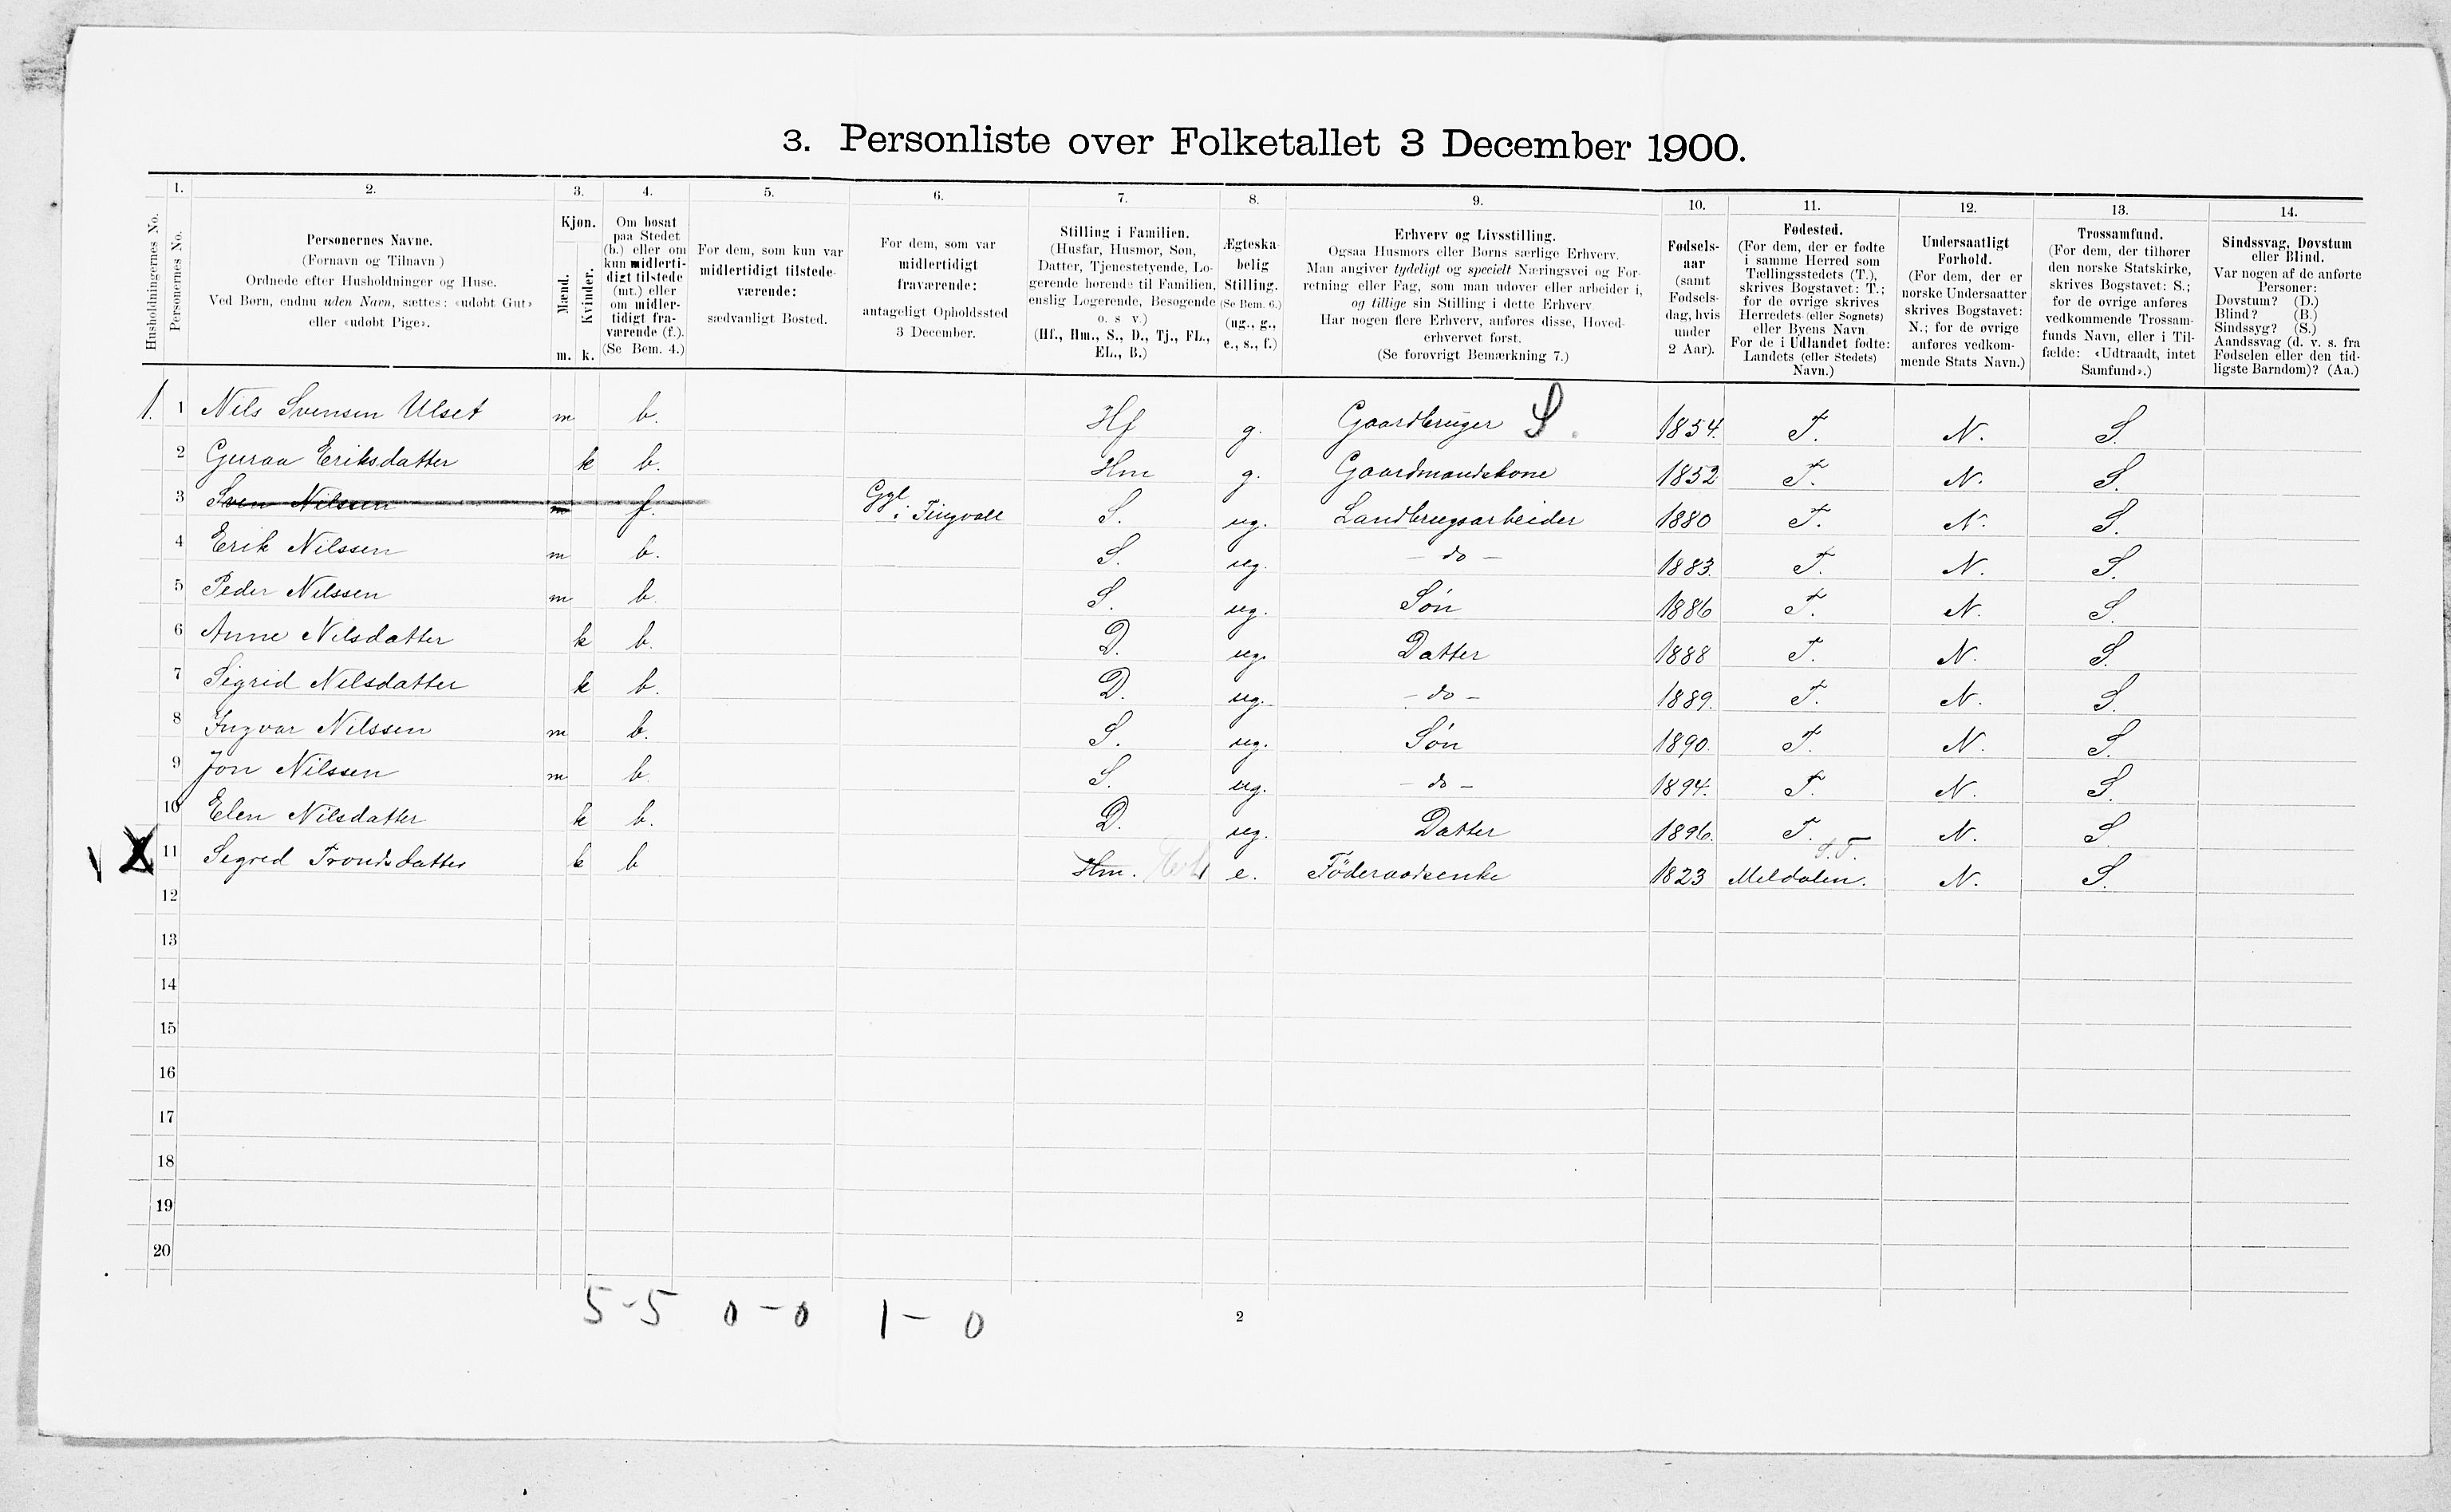 3. Personliste over Folketallet 3 December 1900.
1. 2. 3. 4. 5. 6. 7. 8. 9. 10. 11. 12. 13. 14.
Husholdningernes No.
Personernes No.
Personernes Navne.
(Fornavn og Tilnavn)
Ordnede efter Husholdninger og Huse.
Ved Børn, endnu uden Navn, sættes: «udøbt Gut»
eller «udøbt Pige».
Kjøn.
Mænd.
Kvinder.
m. k.
Om bosat
paa Stedet
(b.) eller om
kun midlerti-
digt tilstede
(mt.) eller
om midler-
tidigt fra-
værende (f.).
(Se Bem. 4.)
For dem, som kun var
midlertidigt tilstede-
værende:
sædvanligt Bosted.
For dem, som var
midlertidigt
fraværende:
antageligt Opholdssted
3 December.
Stilling i Familien.
(Husfar, Husmor, Søn,
Datter, Tjenestetyende, Lo-
gerende hørende til Familien,
enslig Logerende, Besøgende
o. s v.)
(Hf., Hm., S., D., Tj., FL.,
EL., B.)
Ægteska-
belig
Stilling.
(Se Bem. 6.)
(ug., g.,
e., s., f.)
Erhverv og Livsstilling.
Ogsaa Husmors eller Børns særlige Erhverv.
Man angiver tydeligt og specielt Næringsvei og For-
retning eller Fag, som man udøver eller arbeider i,
og tillige sin Stilling i dette Erhverv
Har nogen flere Erhverv, anføres disse, Hoved-
erhvervet først.
(Se forøvrigt Bemærkning 7.)
Fødsels-
aar
(samt
Fødsels-
dag, hvis
under
2 Aar).
Fødested.
(For dem, der er fødte
i samme Herred som
Tællingsstedets (T.),
skrives Bogstavet: T.;
for de øvrige skrives
Herredets (eller Sognets)
eller Byens Navn
For de i Udlandet fødte:
Landets (eller Stedets)
Navn.)
Undersaatligt
Forhold.
(For dem, der er
norske Undersaatter
skrives Bogstavet:
N.; for de øvrige
anføres vedkom-
mende Stats Navn.)
Trossamfund.
(For dem, der tilhører
den norske Statskirke,
skrives Bogstavet: S.;
for de øvrige anføres
vedkommende Trossam-
funds Navn, eller i Til-
fælde: «Udtraadt, intet
Samfund».)
Sindssvag, Døvstum
eller Blind.
Var nogen af de anførte
Personer:
Døvstum? (D.)
Blind? (B.)
Sindssyg? (S.)
Aandssvag (d. v. s. fra
Fødselen eller den tid-
ligste Barndom)? (Aa.)
1. 1 Nils Svensen Ulset m b. Hf g. Gaardbruger S. 1854. T. N. S.
2 Guraa Eriksdatter k b. Hm g. Gaardmandskone 1852 T. N. S.
3 Sven Nilssen m f. i Tingvoll S. ug. Landbrugsarbeider 1880 T. N. S.
4 Erik Nilssen m b. S. ug. - do - 1883. T. N. S.
5 Peder Nilssen m b. S. ug. Søn 1886 T. N. S.
6 Anne Nilsdatter k b. D. ug. Datter 1888 T. N. S.
7 Sigrid Nilsdatter k b. D. ug. - do - 1889. T. N. S.
8 Ingvar Nilssen m b. S. ug. Søn 1890. T. N. S.
9 Jon Nilssen m b. S. ug. - do - 1894. T. N. S.
10 Elen Nilsdatter k b. D. ug. Datter 1896. T. N. S.
X 11 Sigred Trondsdatter k b Hm. e. Föderaadsenke 1823 Meldalen. N. S.
S.T.
12
13
14
15
16
17
18
19
20
5 - 5 0 - 0 1 - 0
2